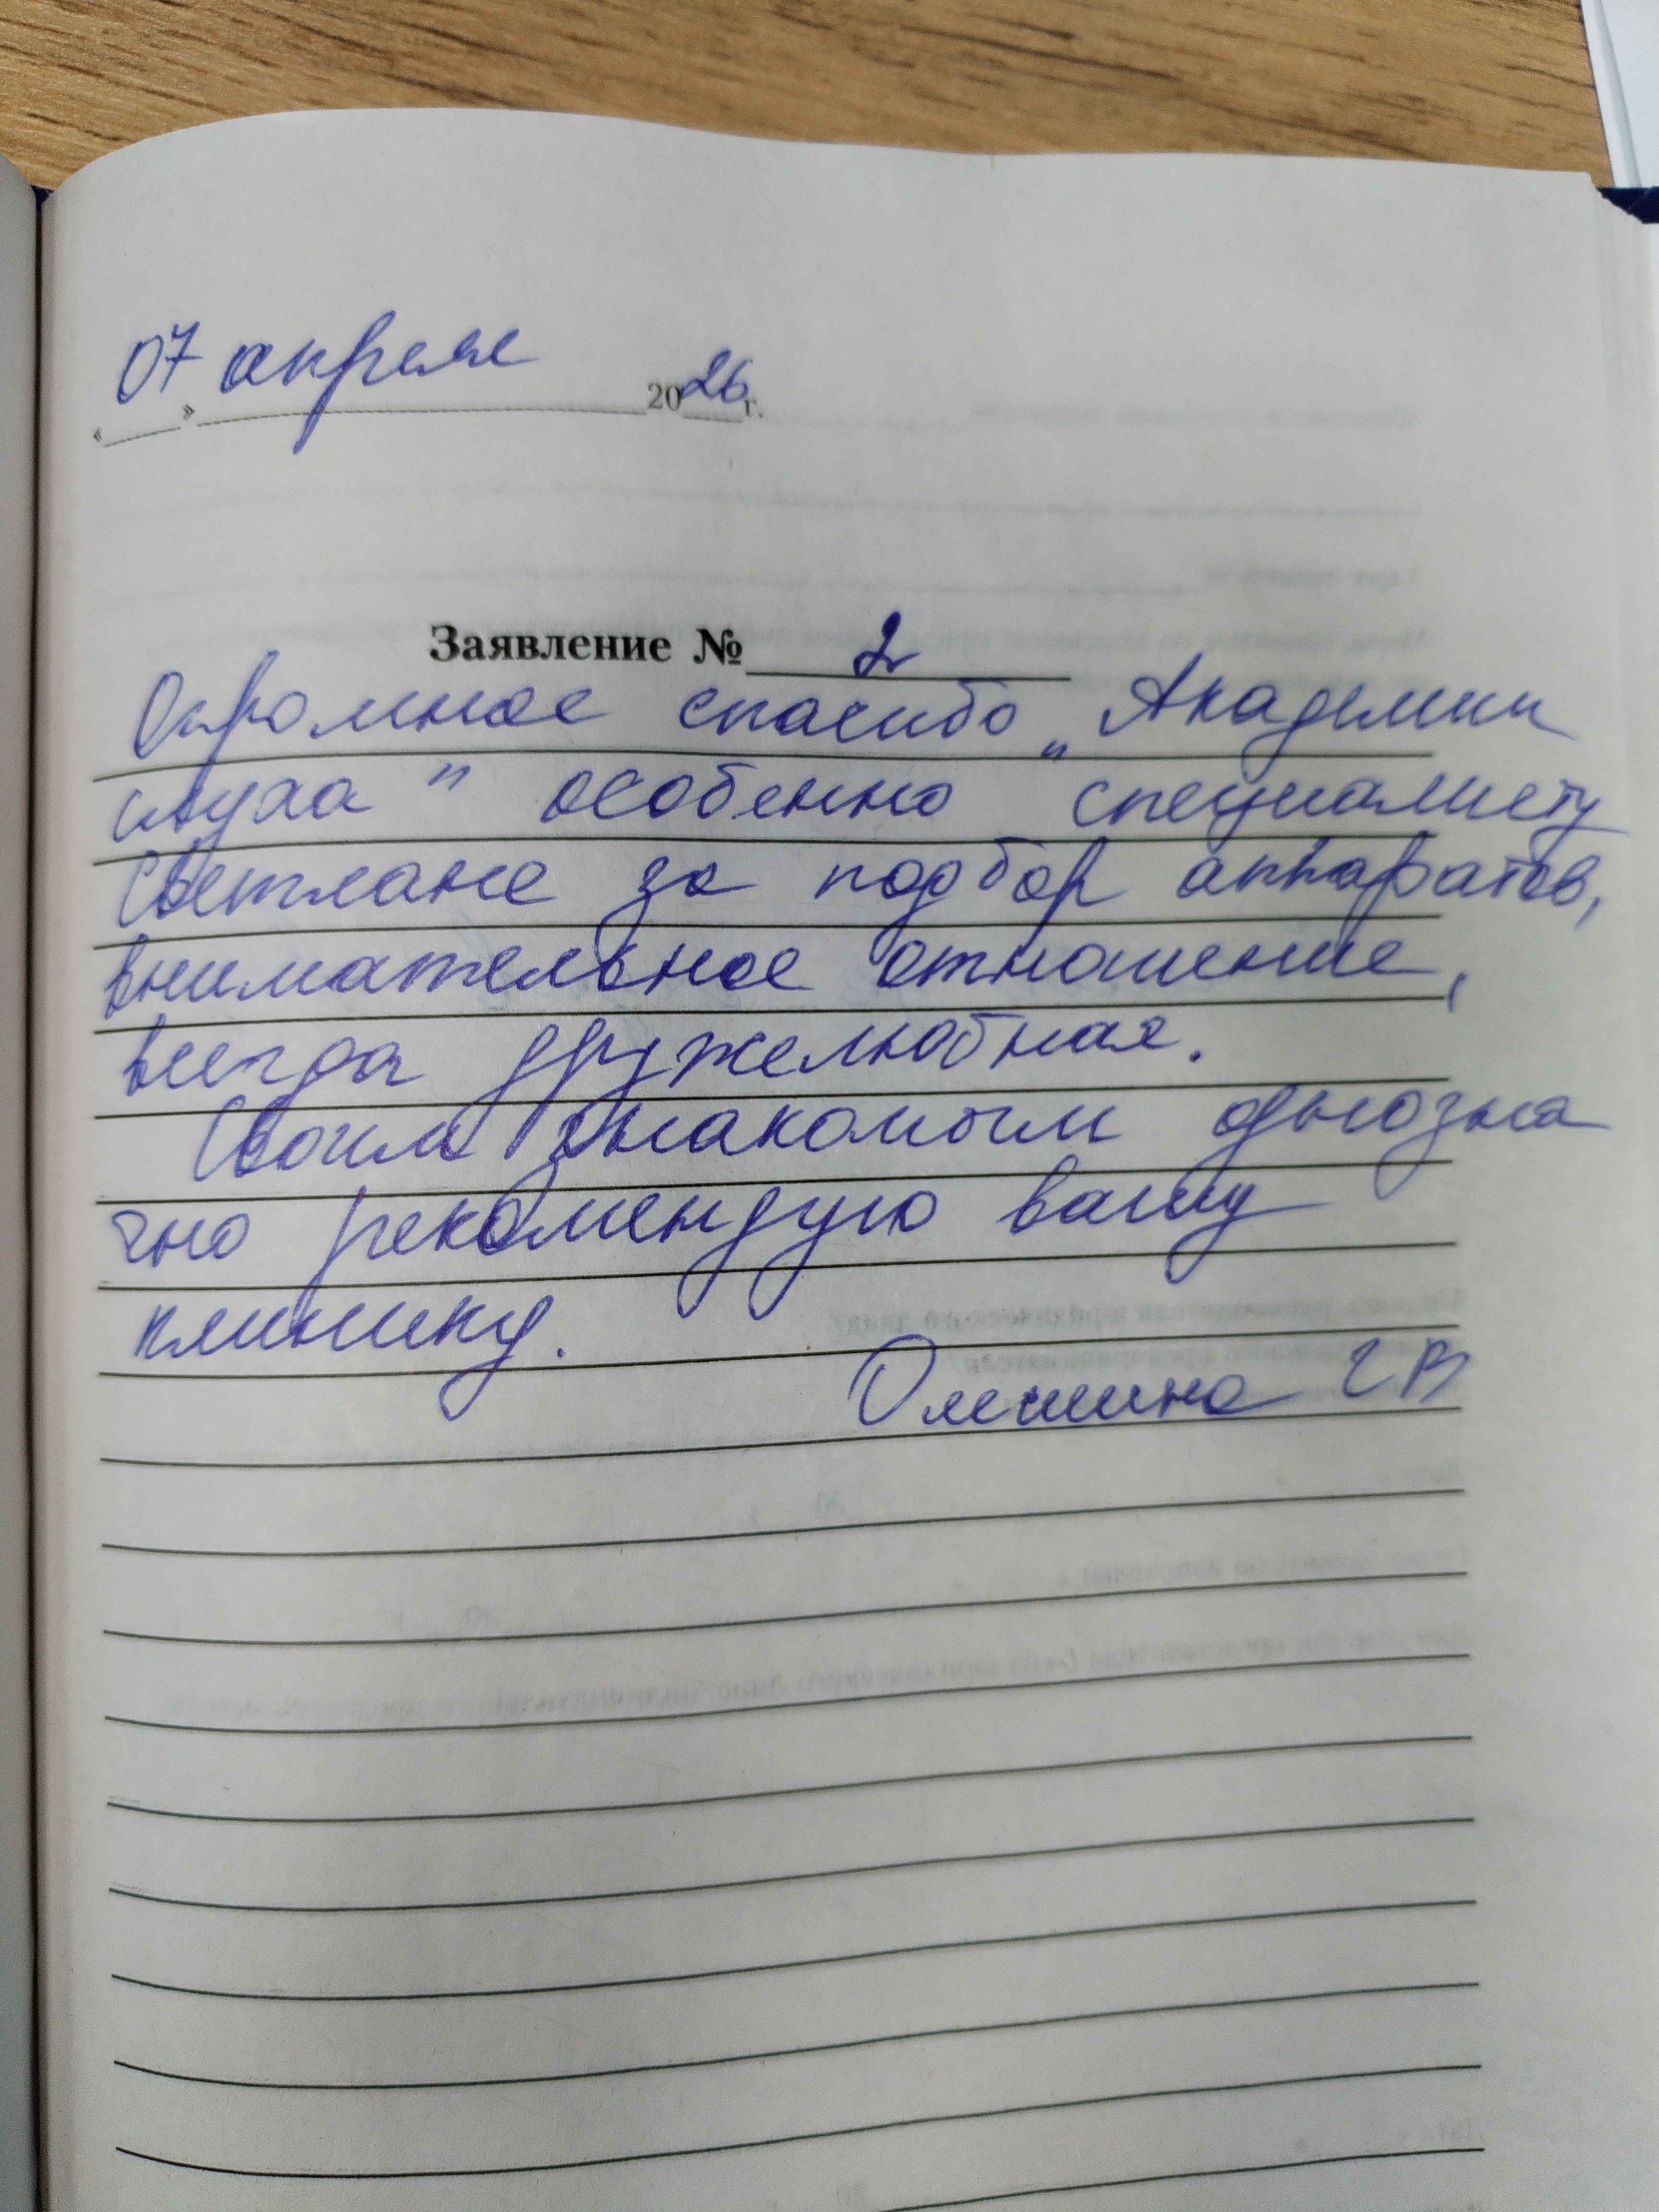 07 апреля 2026 г.
Заявление № 2
Огромное спасибо „Академии
слуха" особенно специалисту
Светлане за подбор аппаратов,
внимательное отношение,
всегда дружелюбная.
Своим знакомым однозна
чно рекомендую вашу
клинику.